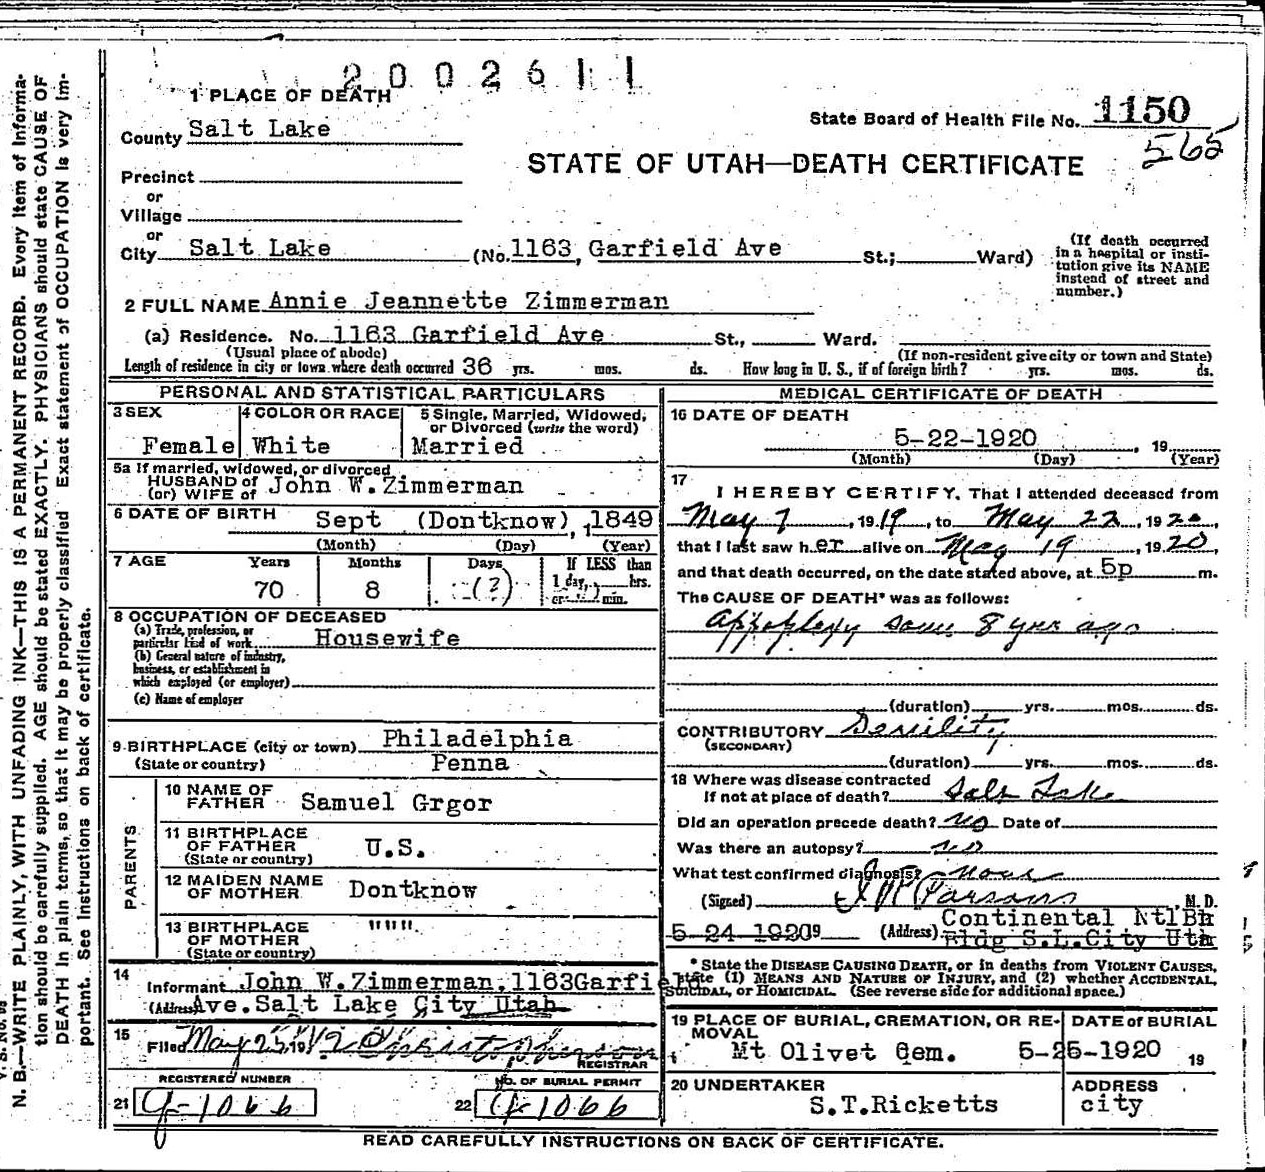 2002611
1 PLACE OF DEATH
State Board of Health File No. 1150
565
County Salt Lake
STATE OF UTAH—DEATH CERTIFICATE
Precinct
or
Village
or
City Salt Lake (No. 1163, Garfield Ave St.; Ward)
(If death occurred
in a hospital or insti-
tution give its NAME
instead of street and
number.)
2 FULL NAME Annie Jeannette Zimmerman
(a) Residence. No. 1163 Garfield Ave St., Ward.
(Usual place of abode) (If non-resident give city or town and State)
Length of residence in city or town where death occurred 36 yrs. mos. ds. How long in U. S., if of foreign birth? yrs. mos. ds.
PERSONAL AND STATISTICAL PARTICULARS
3 SEX
Female
4 COLOR OR RACE
White
5 Single, Married, Widowed,
or Divorced (write the word)
Married
5a If married, widowed, or divorced
HUSBAND of
(or) WIFE of John W. Zimmerman
6 DATE OF BIRTH Sept (Dontknow), 1849
(Month) (Day) (Year)
7 AGE Years Months Days If LESS than
70 8 (?) 1 day, hrs.
or min.
8 OCCUPATION OF DECEASED
(a) Trade, profession, or
particular kind of work Housewife
(b) General nature of industry,
business, or establishment in
which employed (or employer)
(c) Name of employer
9 BIRTHPLACE (city or town) Philadelphia
(State or country) Penna
PARENTS
10 NAME OF
FATHER Samuel Grgor
11 BIRTHPLACE
OF FATHER U.S.
(State or country)
12 MAIDEN NAME
OF MOTHER Dontknow
13 BIRTHPLACE """"
OF MOTHER
(State or country)
14
Informant John W. Zimmerman, 1163Garfield
(Address) Ave. Salt Lake City Utah
15
Filed May 25, 1920
REGISTRAR
REGISTERED NUMBER
21 G-1066
NO. OF BURIAL PERMIT
22 G-1066
MEDICAL CERTIFICATE OF DEATH
16 DATE OF DEATH
5-22-1920, 19
(Month) (Day) (Year)
17
I HEREBY CERTIFY, That I attended deceased from
May 7, 1919, to May 22, 1920,
that I last saw her alive on May 19, 1920
and that death occurred, on the date stated above, at 5p m.
The CAUSE OF DEATH* was as follows:
Appoplexy some 8 yrs ago
(duration) yrs. mos. ds.
CONTRIBUTORY Senility
(SECONDARY)
(duration) yrs. mos. ds.
18 Where was disease contracted
If not at place of death? Salt Lake
Did an operation precede death? no Date of
Was there an autopsy? no
What test confirmed diagnosis? None
(Signed) Parsons, M. D.
5-24 1920 9 (Address) Continental NtlBk
Bldg S.L.City Uth
* State the DISEASE CAUSING DEATH, or in deaths from VIOLENT CAUSES,
state (1) MEANS AND NATURE OF INJURY, and (2) whether ACCIDENTAL,
SUICIDAL, OR HOMICIDAL. (See reverse side for additional space.)
19 PLACE OF BURIAL, CREMATION, OR RE-
MOVAL
Mt Olivet Cem.
DATE of BURIAL
5-25-1920 19
20 UNDERTAKER
S.T.Ricketts
ADDRESS
city
READ CAREFULLY INSTRUCTIONS ON BACK OF CERTIFICATE.
N. B.—WRITE PLAINLY, WITH UNFADING INK—THIS IS A PERMANENT RECORD. Every item of Informa-
tion should be carefully supplied. AGE should be stated EXACTLY. PHYSICIANS should state CAUSE OF
DEATH in plain terms, so that it may be properly classified. Exact statement of OCCUPATION is very im-
portant. See instructions on back of certificate.